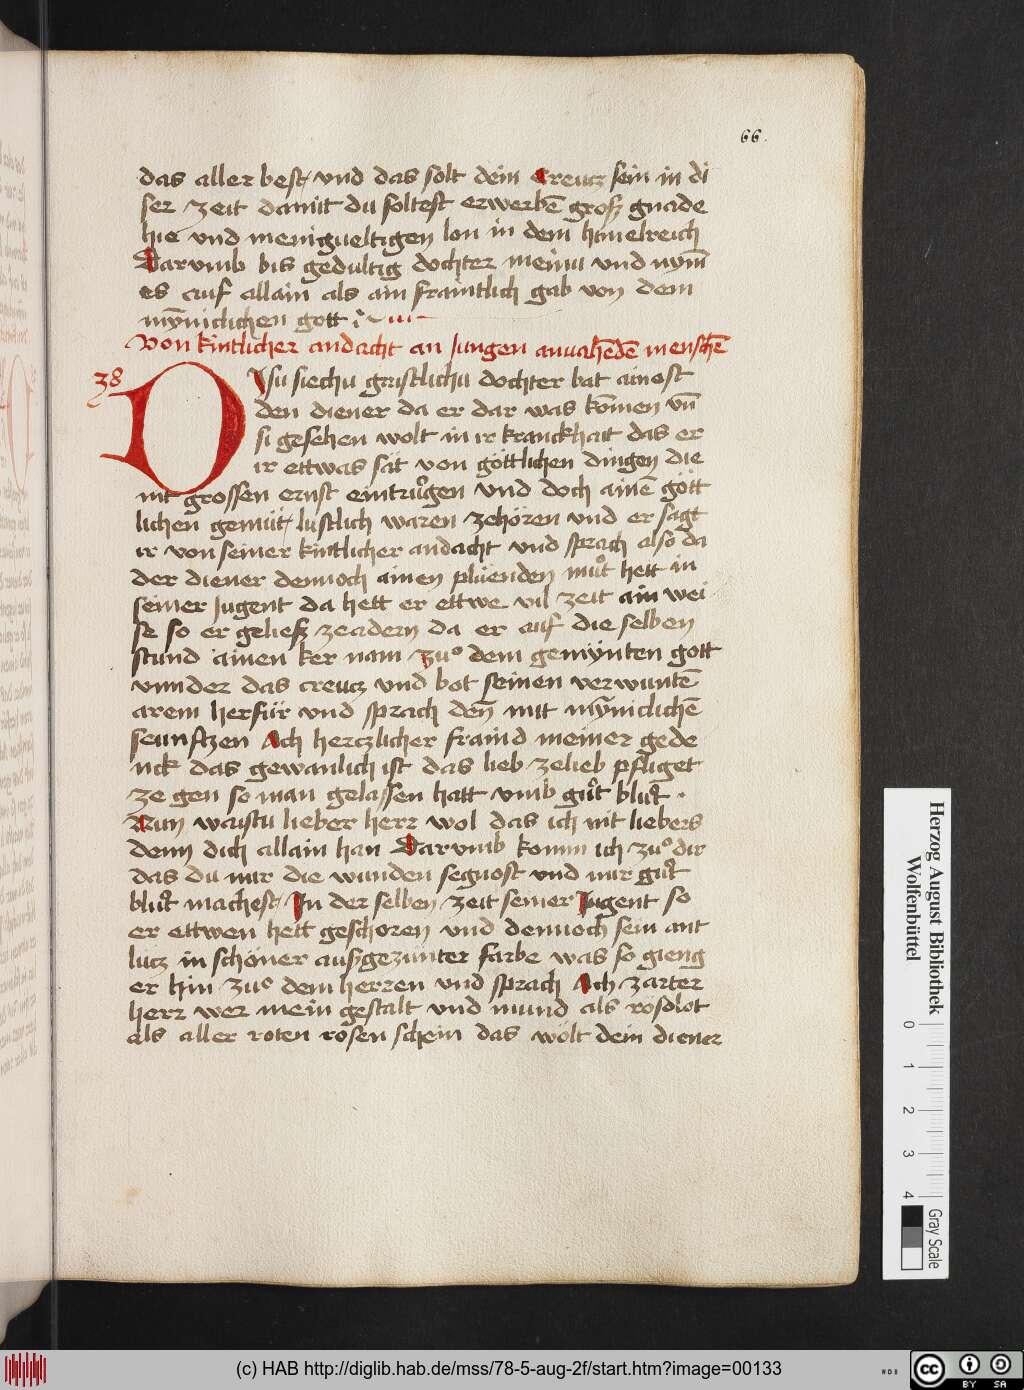 66.
das aller best / vnd das solt dein creucz sein in di
ser zeit damit du soltest erwerbē gross gnade
hie vnd menigueltigen lon in dem himelreich
Darvmb bis gedultig dochter meinu vnd nym̄
es auf allain als ain fraintlich gab von dem
mȳniclichen gott
Von kintlicher andacht an jungen anuahēdē menschē
38
DIsu siechu gaistlichu dochter bat ainost
den diener da er dar was kōmen vn̄
si gesehen wolt in ir kranckhait das er
ir ettwas sāt von göttlichen dingen die
nit grossen ernst eintrůgen vnd doch ainē gött
lichen gemüt / lustlich waren zehören vnd er sagt
ir von seiner kintlicher andacht vnd sprach also da
der diener dennoch ainen plüenden můt hett in
seiner Jugent da hett er ettwe vil zeit ain wei
se so er geliess zeadern da er auf die selben
stund ainen ker nam zuͦ dem gemynten gott
vnnder das creucz vnd bot seinen verwuntē
arem herfür vnd sprach deñ mit mȳniclichē
seunftzen Ach herczlicher fraind meiner gede
nck das gewanlich ist das lieb zelieb pfliget
ze gen so man gelassen hatt vmb gůt blůt .
Nun waistu lieber herr wol das ich nit liebers
denn dich allain han Darvmb komm ich zuͦ dir
das du mir die wunden segnost vnd mir gůt
blůt machest / In der selben zeit seiner Jugent so
er ettwen hett geschoren vnd dennoch sein ant
lücz in schöner aussgezunter farbe was so gieng
er hin zuͦ dem herren vnd sprach Ach zarter
herr wer mein gestalt vnd mund als rosolot
als aller roten rosen schein das wölt dein diener
Herzog August Bibliothek
Wolfenbüttel
0 1 2 3 4
Gray Scale
(c) HAB http://diglib.hab.de/mss/78-5-aug-2f/start.htm?image=00133
WDB
cc BY SA